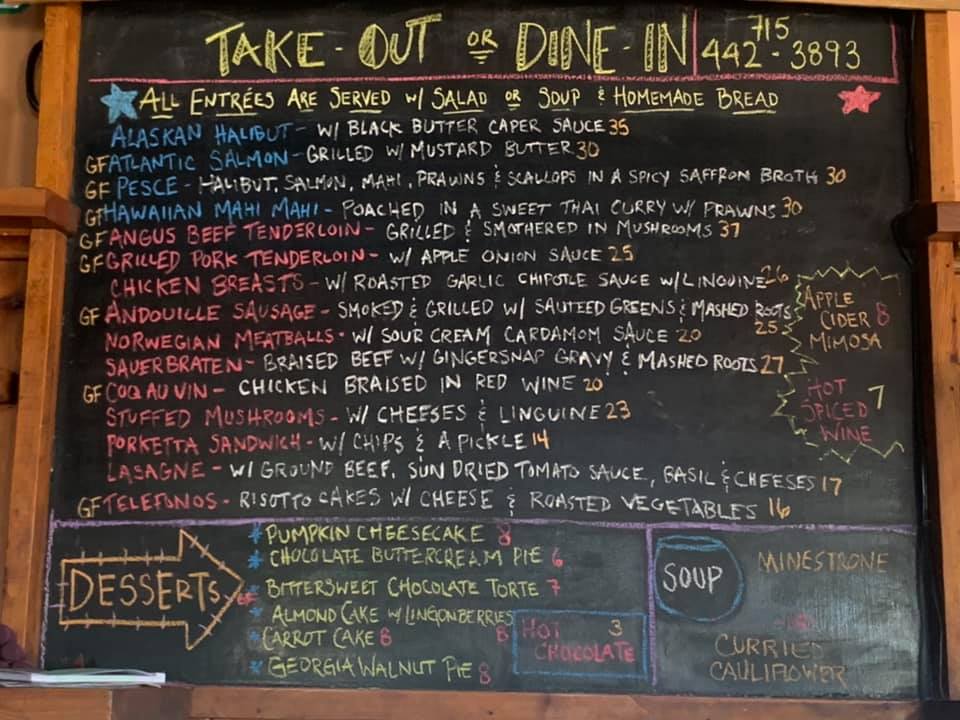 TAKE-OUT OR DINE-IN
715
442-3893
ALL ENTRÉES ARE SERVED W/ SALAD OR SOUP & HOMEMADE BREAD
ALASKAN HALIBUT - W/ BLACK BUTTER CAPER SAUCE 35
GF ATLANTIC SALMON - GRILLED W/ MUSTARD BUTTER 30
GF PESCE - HALIBUT, SALMON, MAHI, PRAWNS & SCALLOPS IN A SPICY SAFFRON BROTH 30
GF HAWAIIAN MAHI MAHI - POACHED IN A SWEET THAI CURRY W/ PRAWNS 30
GF ANGUS BEEF TENDERLOIN - GRILLED & SMOTHERED IN MUSHROOMS 37
GF GRILLED PORK TENDERLOIN - W/ APPLE ONION SAUCE 25
CHICKEN BREASTS - W/ ROASTED GARLIC CHIPOTLE SAUCE W/ LINGUINE 26
GF ANDOUILLE SAUSAGE - SMOKED & GRILLED W/ SAUTEED GREENS & MASHED ROOTS 25
NORWEGIAN MEATBALLS - W/ SOUR CREAM CARDAMOM SAUCE 20
SAUERBRATEN - BRAISED BEEF W/ GINGERSNAP GRAVY & MASHED ROOTS 27
GF COQ AU VIN - CHICKEN BRAISED IN RED WINE 20
STUFFED MUSHROOMS - W/ CHEESES & LINGUINE 23
PORKETTA SANDWICH - W/ CHIPS & A PICKLE 14
LASAGNE - W/ GROUND BEEF, SUN DRIED TOMATO SAUCE, BASIL & CHEESES 17
GF TELEFONOS - RISOTTO CAKES W/ CHEESE & ROASTED VEGETABLES 16
APPLE
CIDER 8
MIMOSA
HOT 7
SPICED
WINE
DESSERTS
PUMPKIN CHEESECAKE 8
CHOCOLATE BUTTERCREAM PIE 6
GF BITTERSWEET CHOCOLATE TORTE 7
ALMOND CAKE W/ LINGONBERRIES 8
CARROT CAKE 8
GEORGIA WALNUT PIE 8
HOT 3
CHOCOLATE
SOUP
MINESTRONE
CURRIED
CAULIFLOWER